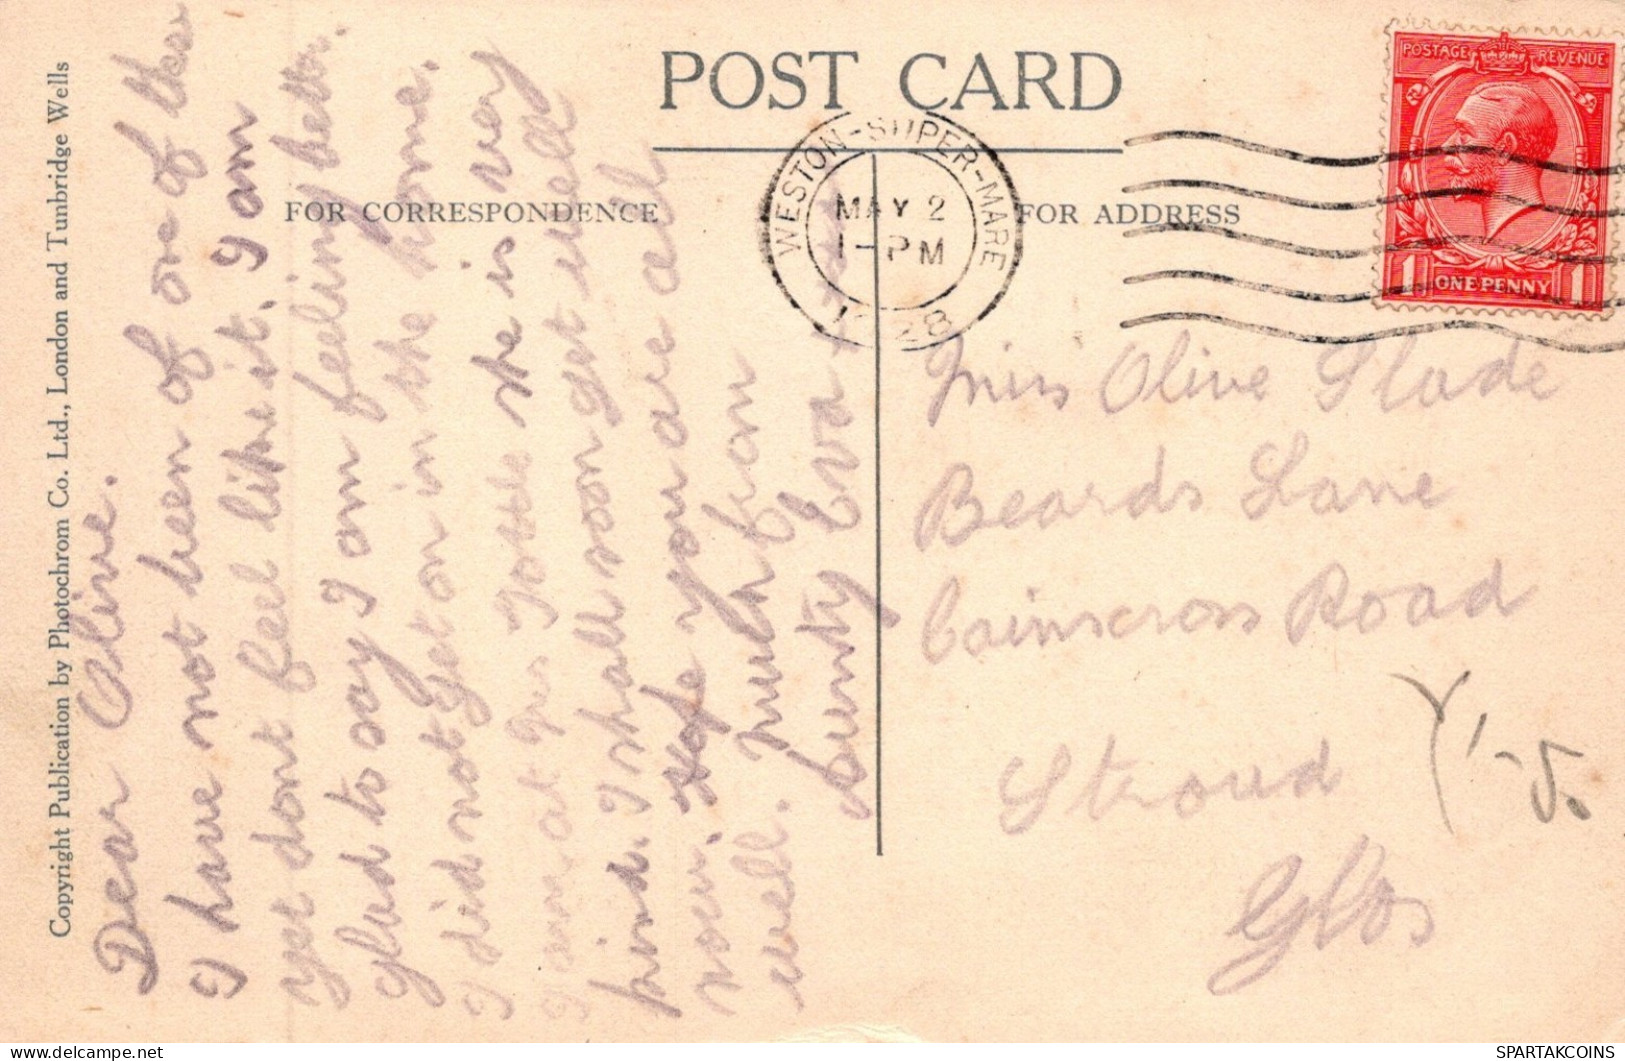 POST CARD
FOR CORRESPONDENCE
FOR ADDRESS
Copyright Publication by Photochrom Co. Ltd., London and Tunbridge Wells
WESTON-SUPER-MARE
MAY 2
1- PM
28
POSTAGE REVENUE
1 ONE PENNY 1
Dear Olive.
I have not been of one of these
yet dont feel like it. I am
glad to say I am feeling better.
I did not get on in the home.
I am at Mrs she is very
kind. I shall soon get well
now. Hope you are all
well. Much from
Aunty Eva
Miss Olive Slade
Beards Lane
Cainscross Road
Stroud
Glos
SPARTAKCOINS